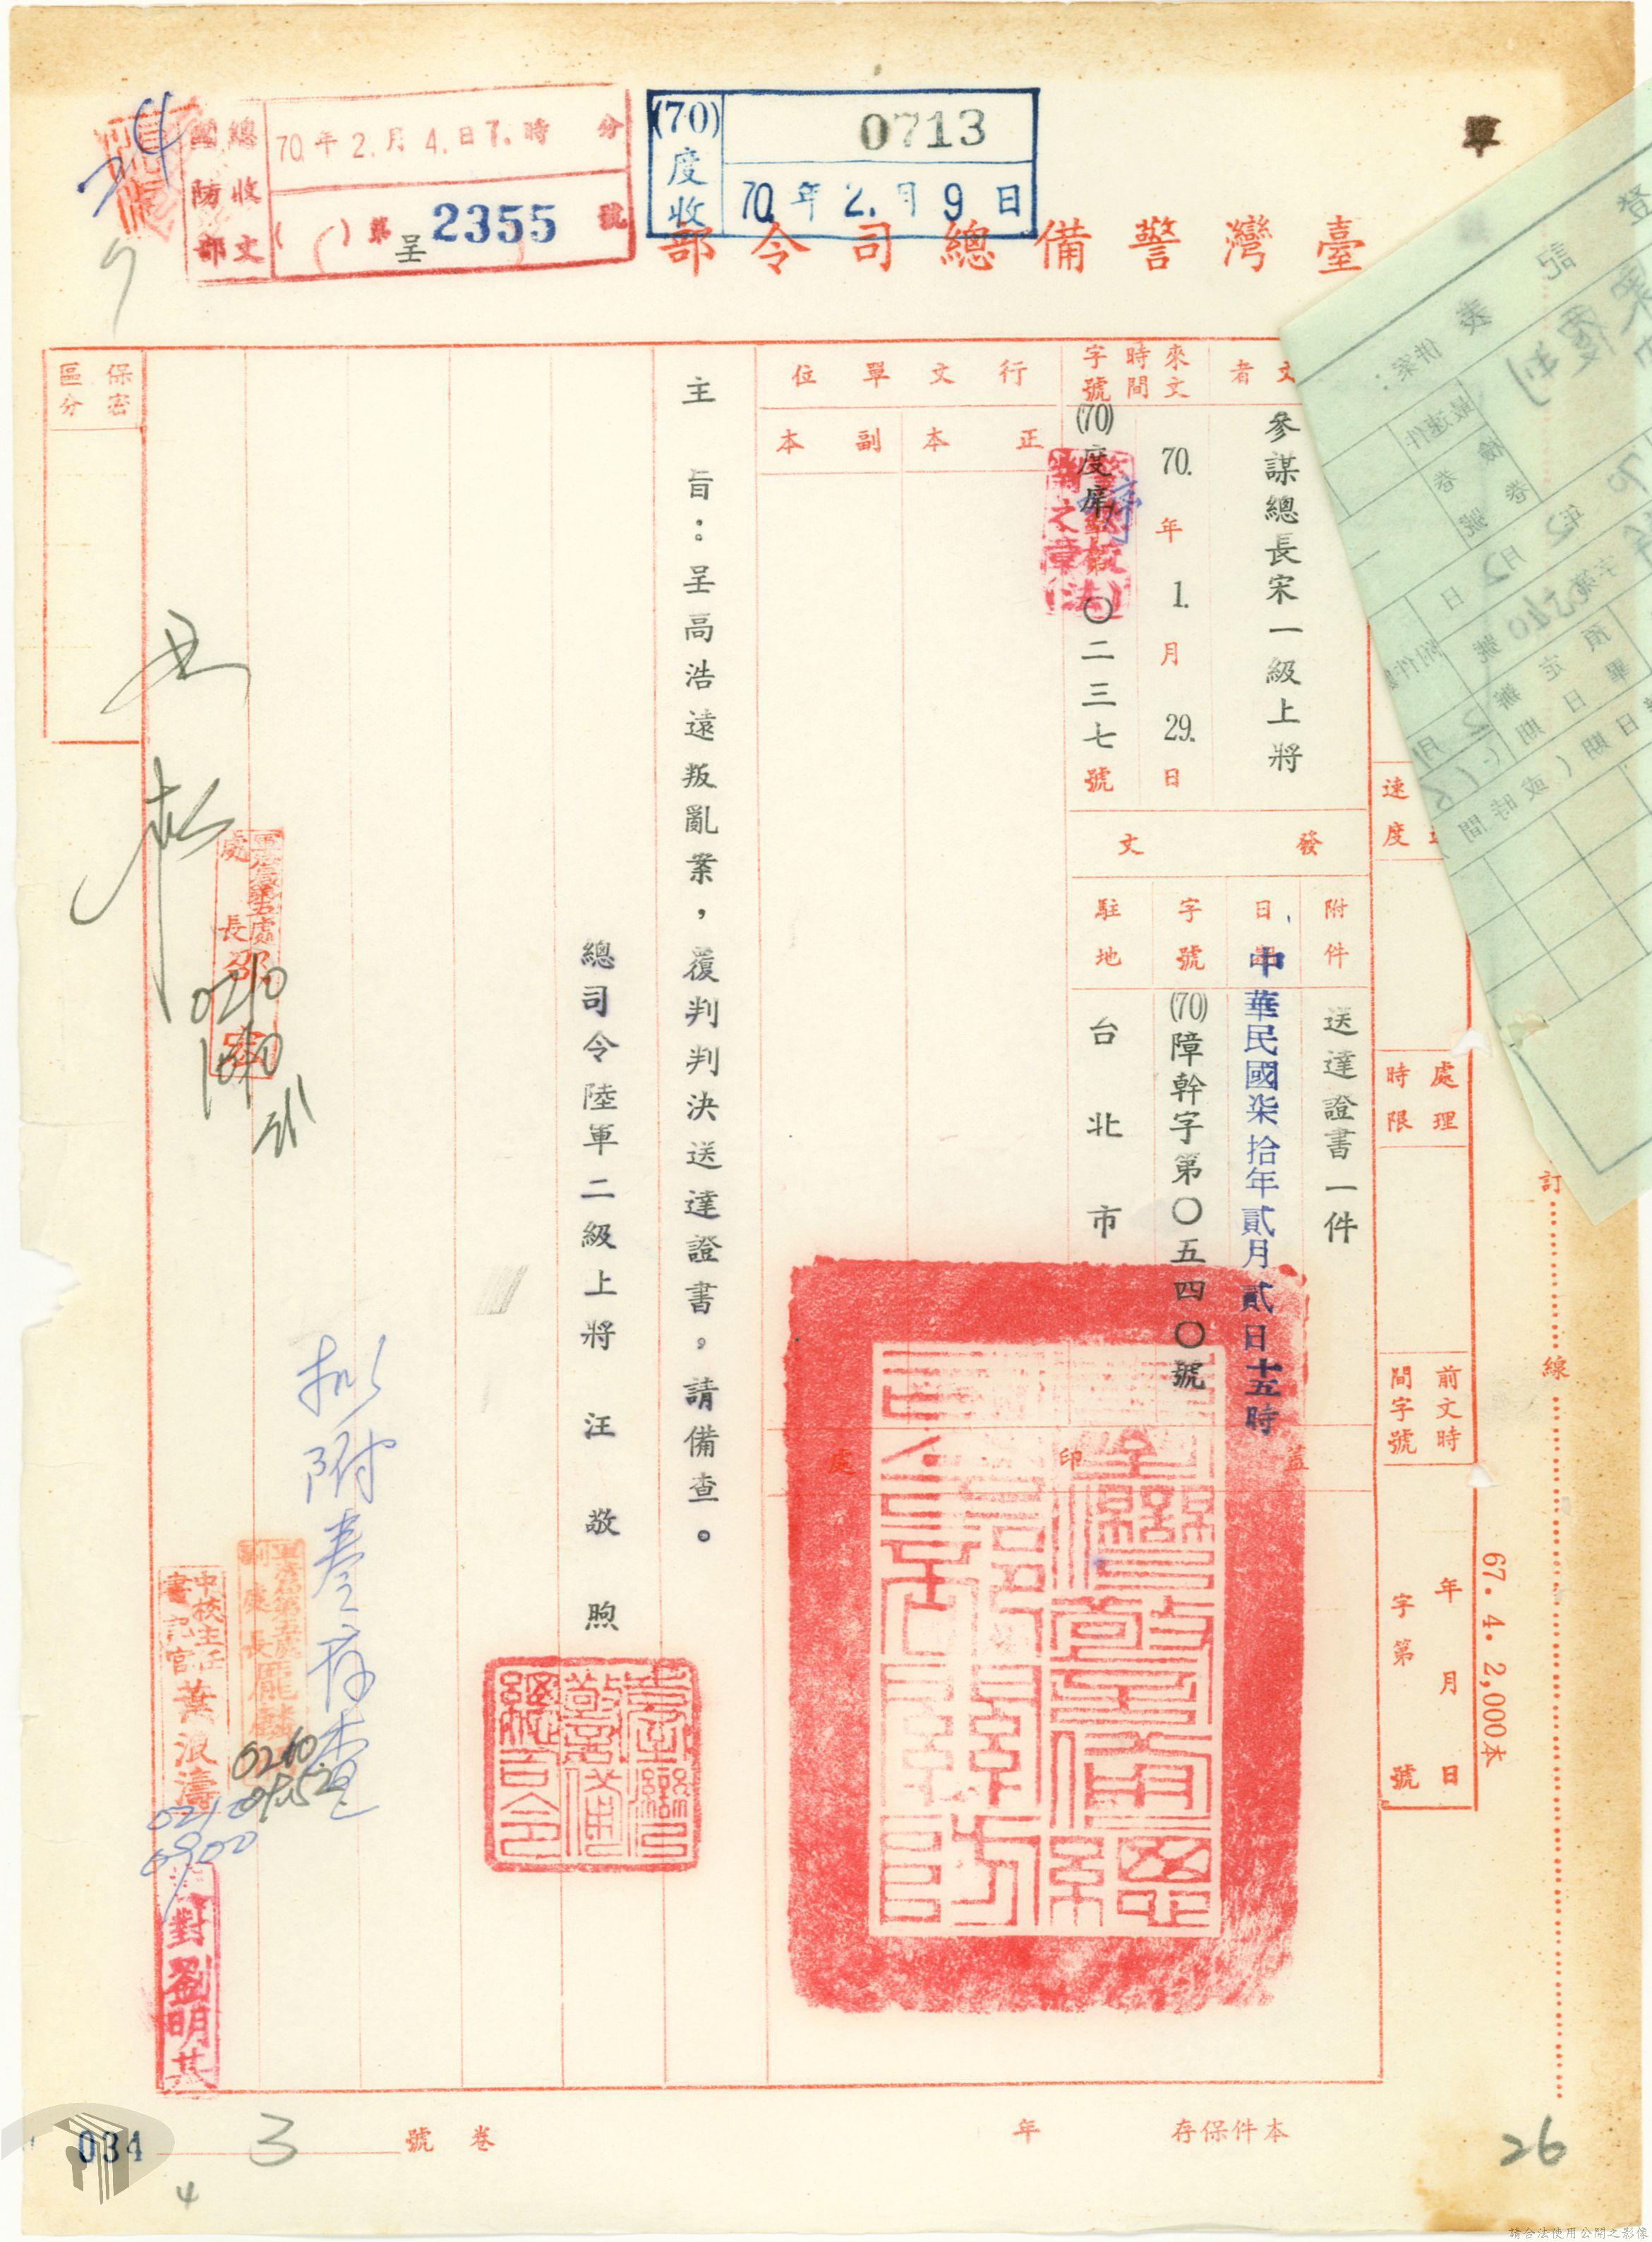 國防部
總收文
70年2月4日7時 分
( )第 呈 2355 號
(70)度收
0713
70年2月9日
臺灣警備總司令部
訂
線
67.4.2,000本
速度
處理時限
前文時間字號
年 月 日
字第 號
文者
參謀總長宋一級上將
來文時間
70.年1.月29.日
字號
(70)度庠 〇二三七號
發文
附件
送達證書一件
日期
中華民國柒拾年貳月貳日十五時
字號
(70)障幹字第〇五四〇號
駐地
台北市
蓋印處
行文單位
正本
副本
主旨：呈高浩遠叛亂案，覆判判決送達證書，請備查。
總司令陸軍二級上將汪敬煦
臺灣警備總司令
擬附卷存查
軍法第五處
副處長
0210
中校主任
書記官葉浪濤
0210
0900
對劉明其
處長
0210
1040
保密區分
登記表
併案：
最速件
年 月 日
本件保存 年
卷 號
3
034
4
26
請合法使用公開之影像